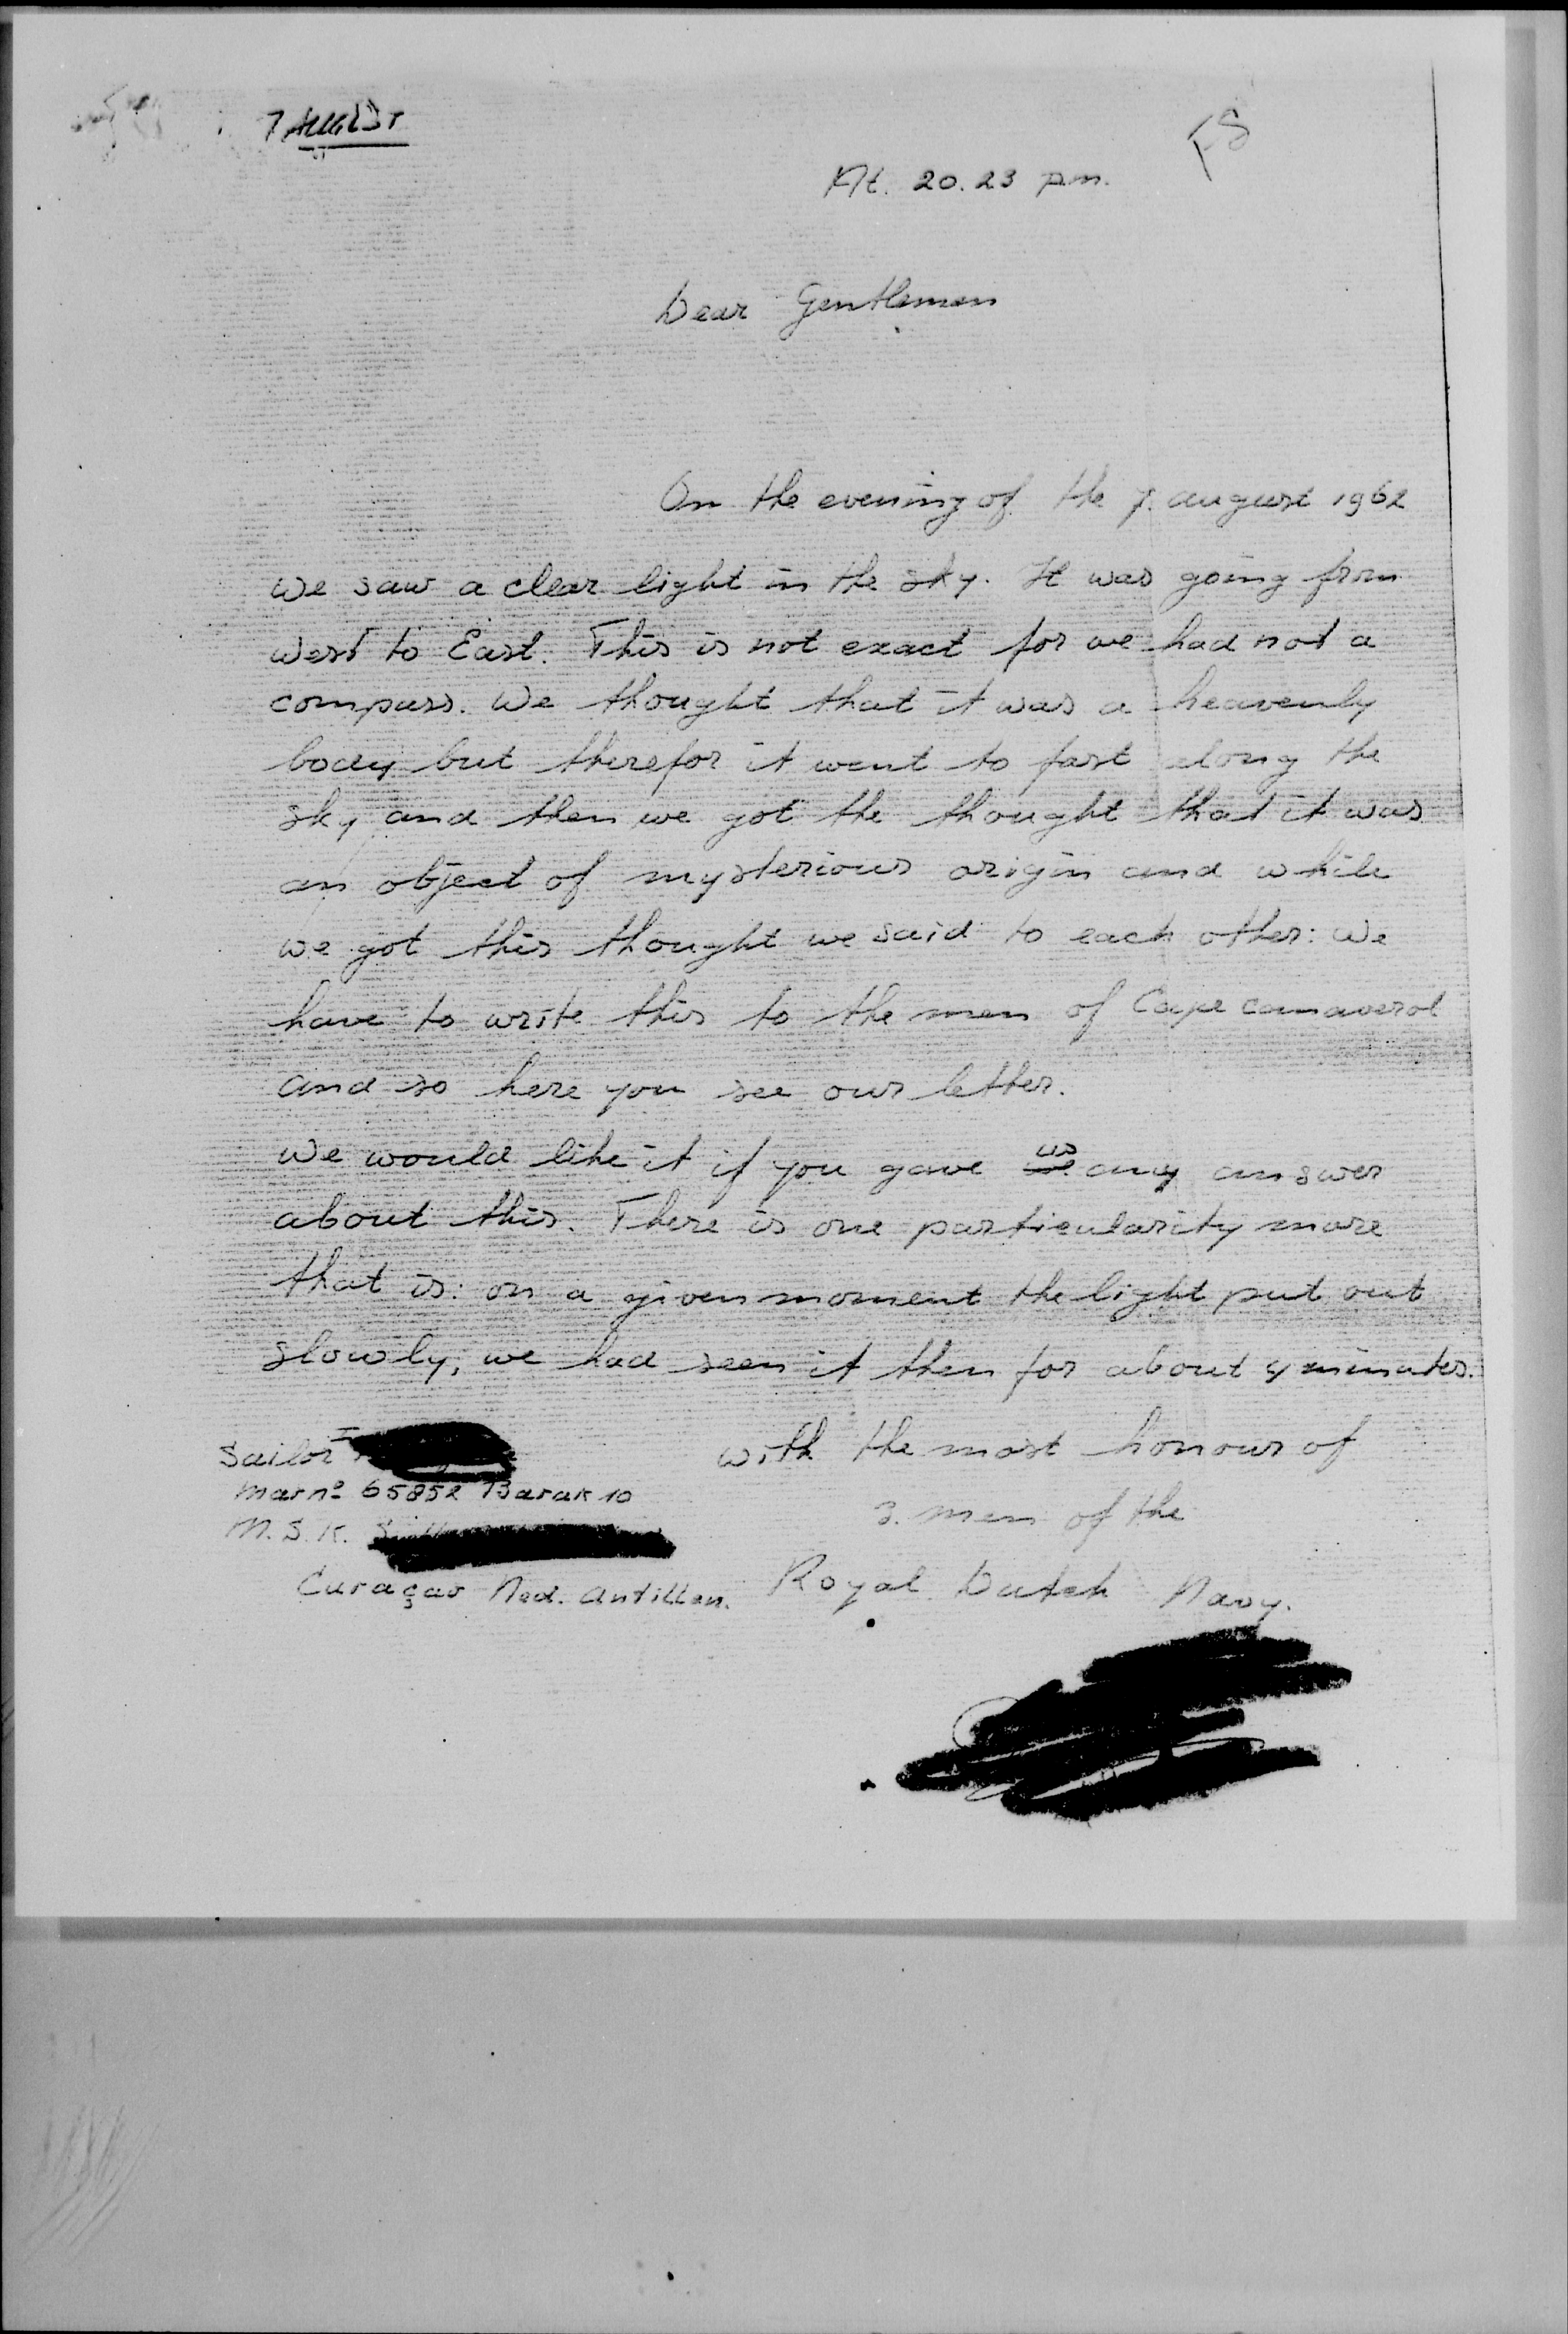 7 AUGUST
At. 20.23 p.m.
Dear Gentlemen
On the evening of the 7. august 1962
we saw a clear light in the sky. It was going from
west to East. This is not exact for we had not a
compass. We thought that it was a heavenly
body but therefor it went to fast along the
sky and then we got the thought that it was
an object of mysterious origin and while
we got this thought we said to each other: we
have to write this to the men of Cape canaverol
and so here you see our letter.
we would like it if you gave us any answer
about this. There is one particularity more
that is: on a given moment the light put out
slowly, we had seen it then for about 4 minutes.
with the most honour of
3. men of the
Royal Dutch Navy.
Sailor
marno 65852 Barak 10
M.S.K.
Curaçao Ned. Antillen.